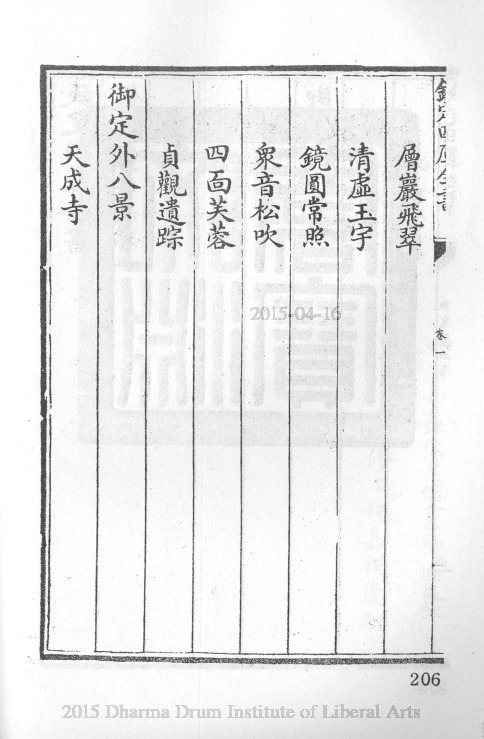 欽定四庫全書
卷一
層巖飛翠
清虛玉宇
鏡圓常照
衆音松吹
四面芙蓉
貞觀遺踪
御定外八景
天成寺
2015-04-16
206
2015 Dharma Drum Institute of Liberal Arts